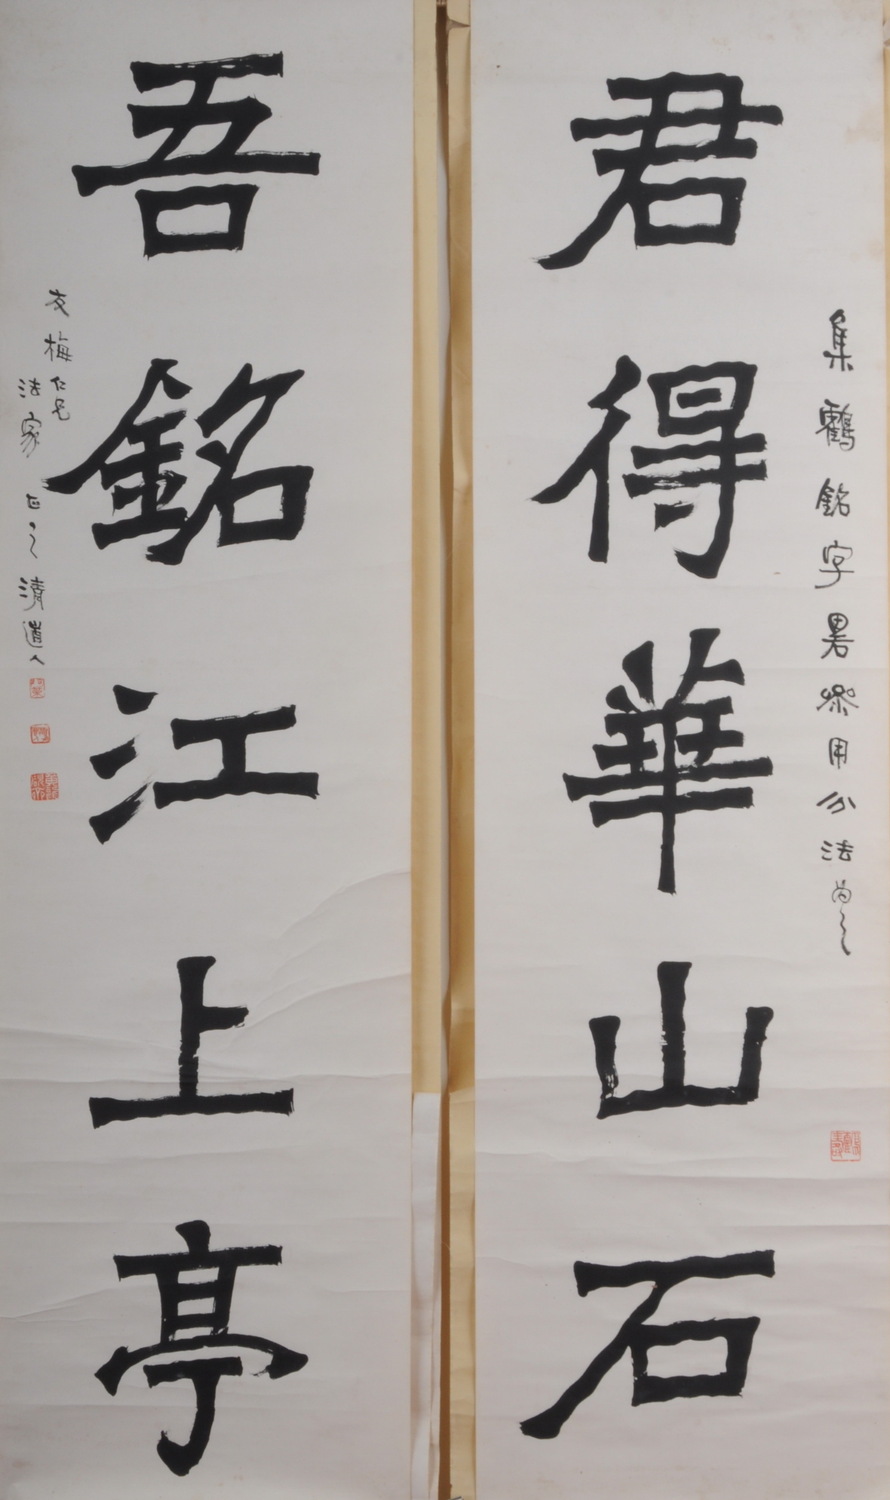 君得華山石
集鶴銘字畧參用分法爲之
吾銘江上亭
友梅仁兄
法家正之 清道人